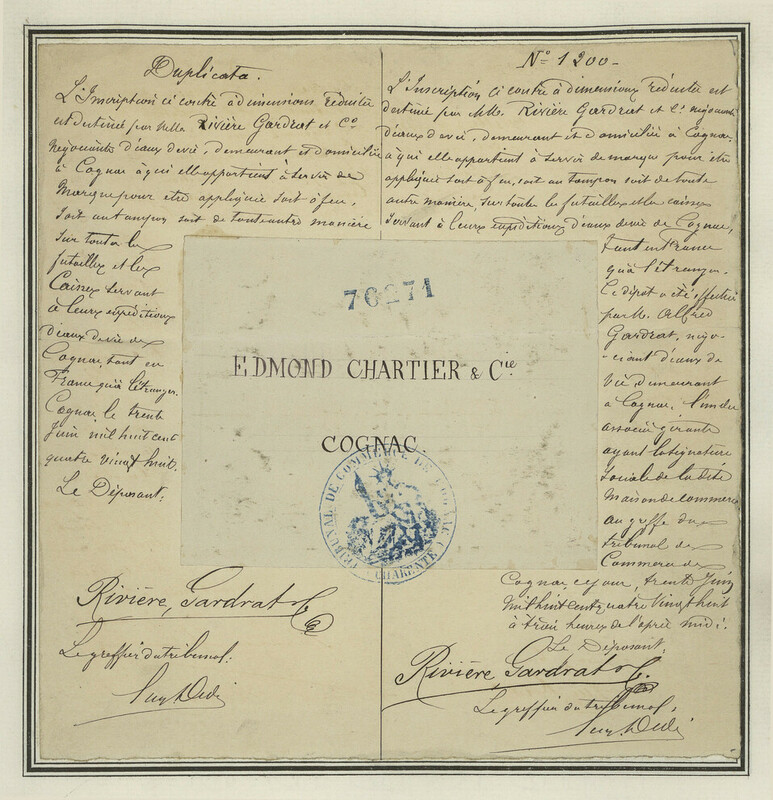 Duplicata.
L'Inscription ci contre à dimensions réduites
est destinée par Mrs Rivière Gardrat et Co.
Négociants d'eaux de vie, demeurant et domiciliés
à Cognac à qui elle appartient à servir de
Marque pour être appliquée soit à feu,
soit au tampon soit de toute autre manière
sur toutes les
futailles et les
Caisses servant
à leurs expéditions
d'eaux de vie de
Cognac, tant en
France qu'à l'étranger.
Cognac le trente
Juin mil huit cent
quatre vingt huit.
Le Déposant:
Rivière, Gardrat & Co
Le greffier du tribunal:
No 1200-
L'Inscription ci contre à dimensions réduites est
destinée par MMrs. Rivière Gardrat et Co. négociants
d'eaux de vie, demeurant et domiciliés à Cognac,
à qui elle appartient à servir de marque pour être
appliquée soit à feu, soit au tampon soit de toute
autre manière, sur toutes les futailles et les caisses
servant à leurs expéditions d'eaux de vie de Cognac,
tant en France
qu'à l'étranger.
Le dépôt a été effectué
par M. Alfred
Gardrat, négo-
-ciant d'eaux de
vie, demeurant
à Cognac, l'un des
associés gérants
ayant la signature
sociale de la dite
Maison de commerce
au greffe du
tribunal de
Commerce de
Cognac, ce jour, trente Juin
Mil huit cent quatre vingt huit
à trois heures de l'après midi.
Le Déposant:
Rivière, Gardrat & Co.
Le greffier du tribunal:
76271
EDMOND CHARTIER & Cie
COGNAC.
TRIBUNAL DE COMMERCE DE COGNAC
CHARENTE